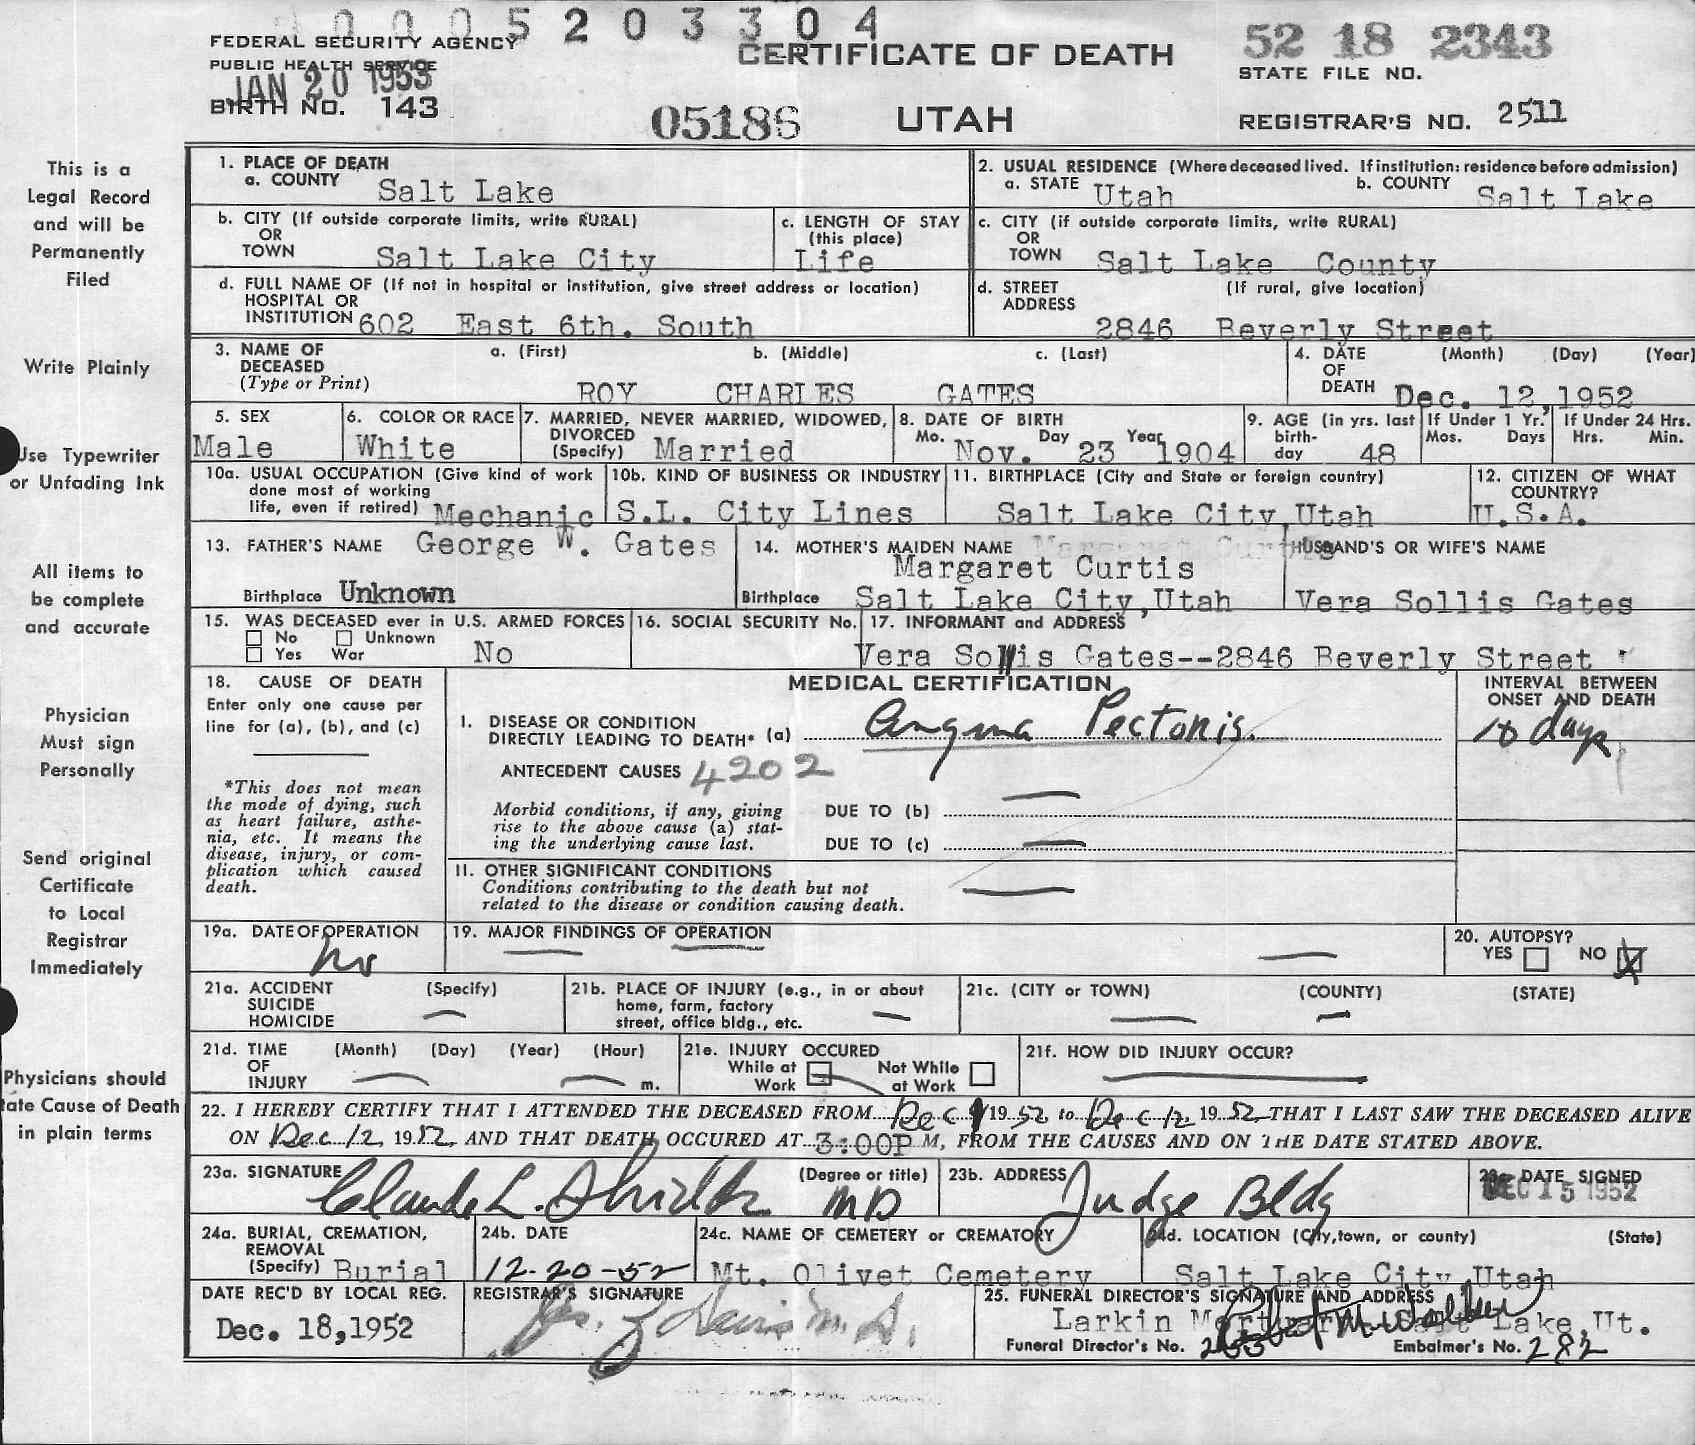 0005203304
FEDERAL SECURITY AGENCY
PUBLIC HEALTH SERVICE
JAN 20 1953
BIRTH NO. 143
CERTIFICATE OF DEATH
05186 UTAH
52 18 2343
STATE FILE NO.
REGISTRAR'S NO. 2511
This is a
Legal Record
and will be
Permanently
Filed
Write Plainly
Use Typewriter
or Unfading Ink
All items to
be complete
and accurate
Physician
Must sign
Personally
Send original
Certificate
to Local
Registrar
Immediately
Physicians should
tate Cause of Death
in plain terms
1. PLACE OF DEATH
a. COUNTY Salt Lake
2. USUAL RESIDENCE (Where deceased lived. If institution: residence before admission)
a. STATE Utah b. COUNTY Salt Lake
b. CITY (If outside corporate limits, write RURAL)
OR
TOWN Salt Lake City
c. LENGTH OF STAY
(this place)
Life
c. CITY (if outside corporate limits, write RURAL)
OR
TOWN Salt Lake County
d. FULL NAME OF (If not in hospital or institution, give street address or location)
HOSPITAL OR
INSTITUTION 602 East 6th. South
d. STREET (If rural, give location)
ADDRESS
2846 Beverly Street
3. NAME OF a. (First) b. (Middle) c. (Last)
DECEASED
(Type or Print) ROY CHARLES GATES
4. DATE (Month) (Day) (Year)
OF
DEATH Dec. 12,1952
5. SEX
Male
6. COLOR OR RACE
White
7. MARRIED, NEVER MARRIED, WIDOWED,
DIVORCED
(Specify) Married
8. DATE OF BIRTH
Mo. Day Year
Nov. 23 1904
9. AGE (in yrs. last
birth-
day 48
If Under 1 Yr.
Mos. Days
If Under 24 Hrs.
Hrs. Min.
10a. USUAL OCCUPATION (Give kind of work
done most of working
life, even if retired) Mechanic
10b. KIND OF BUSINESS OR INDUSTRY
S.L. City Lines
11. BIRTHPLACE (City and State or foreign country)
Salt Lake City,Utah
12. CITIZEN OF WHAT
COUNTRY?
U.S.A.
13. FATHER'S NAME George W. Gates
Birthplace Unknown
14. MOTHER'S MAIDEN NAME Margaret Curtis
Margaret Curtis
Birthplace Salt Lake City,Utah
HUSBAND'S OR WIFE'S NAME
Vera Sollis Gates
15. WAS DECEASED ever in U.S. ARMED FORCES
No Unknown
Yes War No
16. SOCIAL SECURITY No.
17. INFORMANT and ADDRESS
Vera Sollis Gates--2846 Beverly Street
18. CAUSE OF DEATH
Enter only one cause per
line for (a), (b), and (c)
*This does not mean
the mode of dying, such
as heart failure, asthe-
nia, etc. It means the
disease, injury, or com-
plication which caused
death.
MEDICAL CERTIFICATION
INTERVAL BETWEEN
ONSET AND DEATH
I. DISEASE OR CONDITION
DIRECTLY LEADING TO DEATH* (a) Angina Pectoris.
10 days
ANTECEDENT CAUSES 4202
Morbid conditions, if any, giving
rise to the above cause (a) stat-
ing the underlying cause last.
DUE TO (b)
DUE TO (c)
II. OTHER SIGNIFICANT CONDITIONS
Conditions contributing to the death but not
related to the disease or condition causing death.
19a. DATE OF OPERATION
No
19. MAJOR FINDINGS OF OPERATION
20. AUTOPSY?
YES NO X
21a. ACCIDENT (Specify)
SUICIDE
HOMICIDE
21b. PLACE OF INJURY (e.g., in or about
home, farm, factory
street, office bldg., etc.
21c. (CITY or TOWN) (COUNTY) (STATE)
21d. TIME (Month) (Day) (Year) (Hour)
OF
INJURY m.
21e. INJURY OCCURED
While at Not While
Work at Work
21f. HOW DID INJURY OCCUR?
22. I HEREBY CERTIFY THAT I ATTENDED THE DECEASED FROM Dec 9 1952 to Dec 12 1952, THAT I LAST SAW THE DECEASED ALIVE
ON Dec 12 1952, AND THAT DEATH OCCURED AT 3:00P M, FROM THE CAUSES AND ON THE DATE STATED ABOVE.
23a. SIGNATURE (Degree or title)
Claude L. Shields MD
23b. ADDRESS
Judge Bldg
23c. DATE SIGNED
DEC 15 1952
24a. BURIAL, CREMATION,
REMOVAL
(Specify) Burial
24b. DATE
12-20-52
24c. NAME OF CEMETERY or CREMATORY
Mt. Olivet Cemetery
24d. LOCATION (City, town, or county) (State)
Salt Lake City Utah
DATE REC'D BY LOCAL REG.
Dec. 18,1952
REGISTRAR'S SIGNATURE
Davis M.D.
25. FUNERAL DIRECTOR'S SIGNATURE AND ADDRESS
Larkin Mortuary Salt Lake,Ut.
Funeral Director's No. Embalmer's No. 282